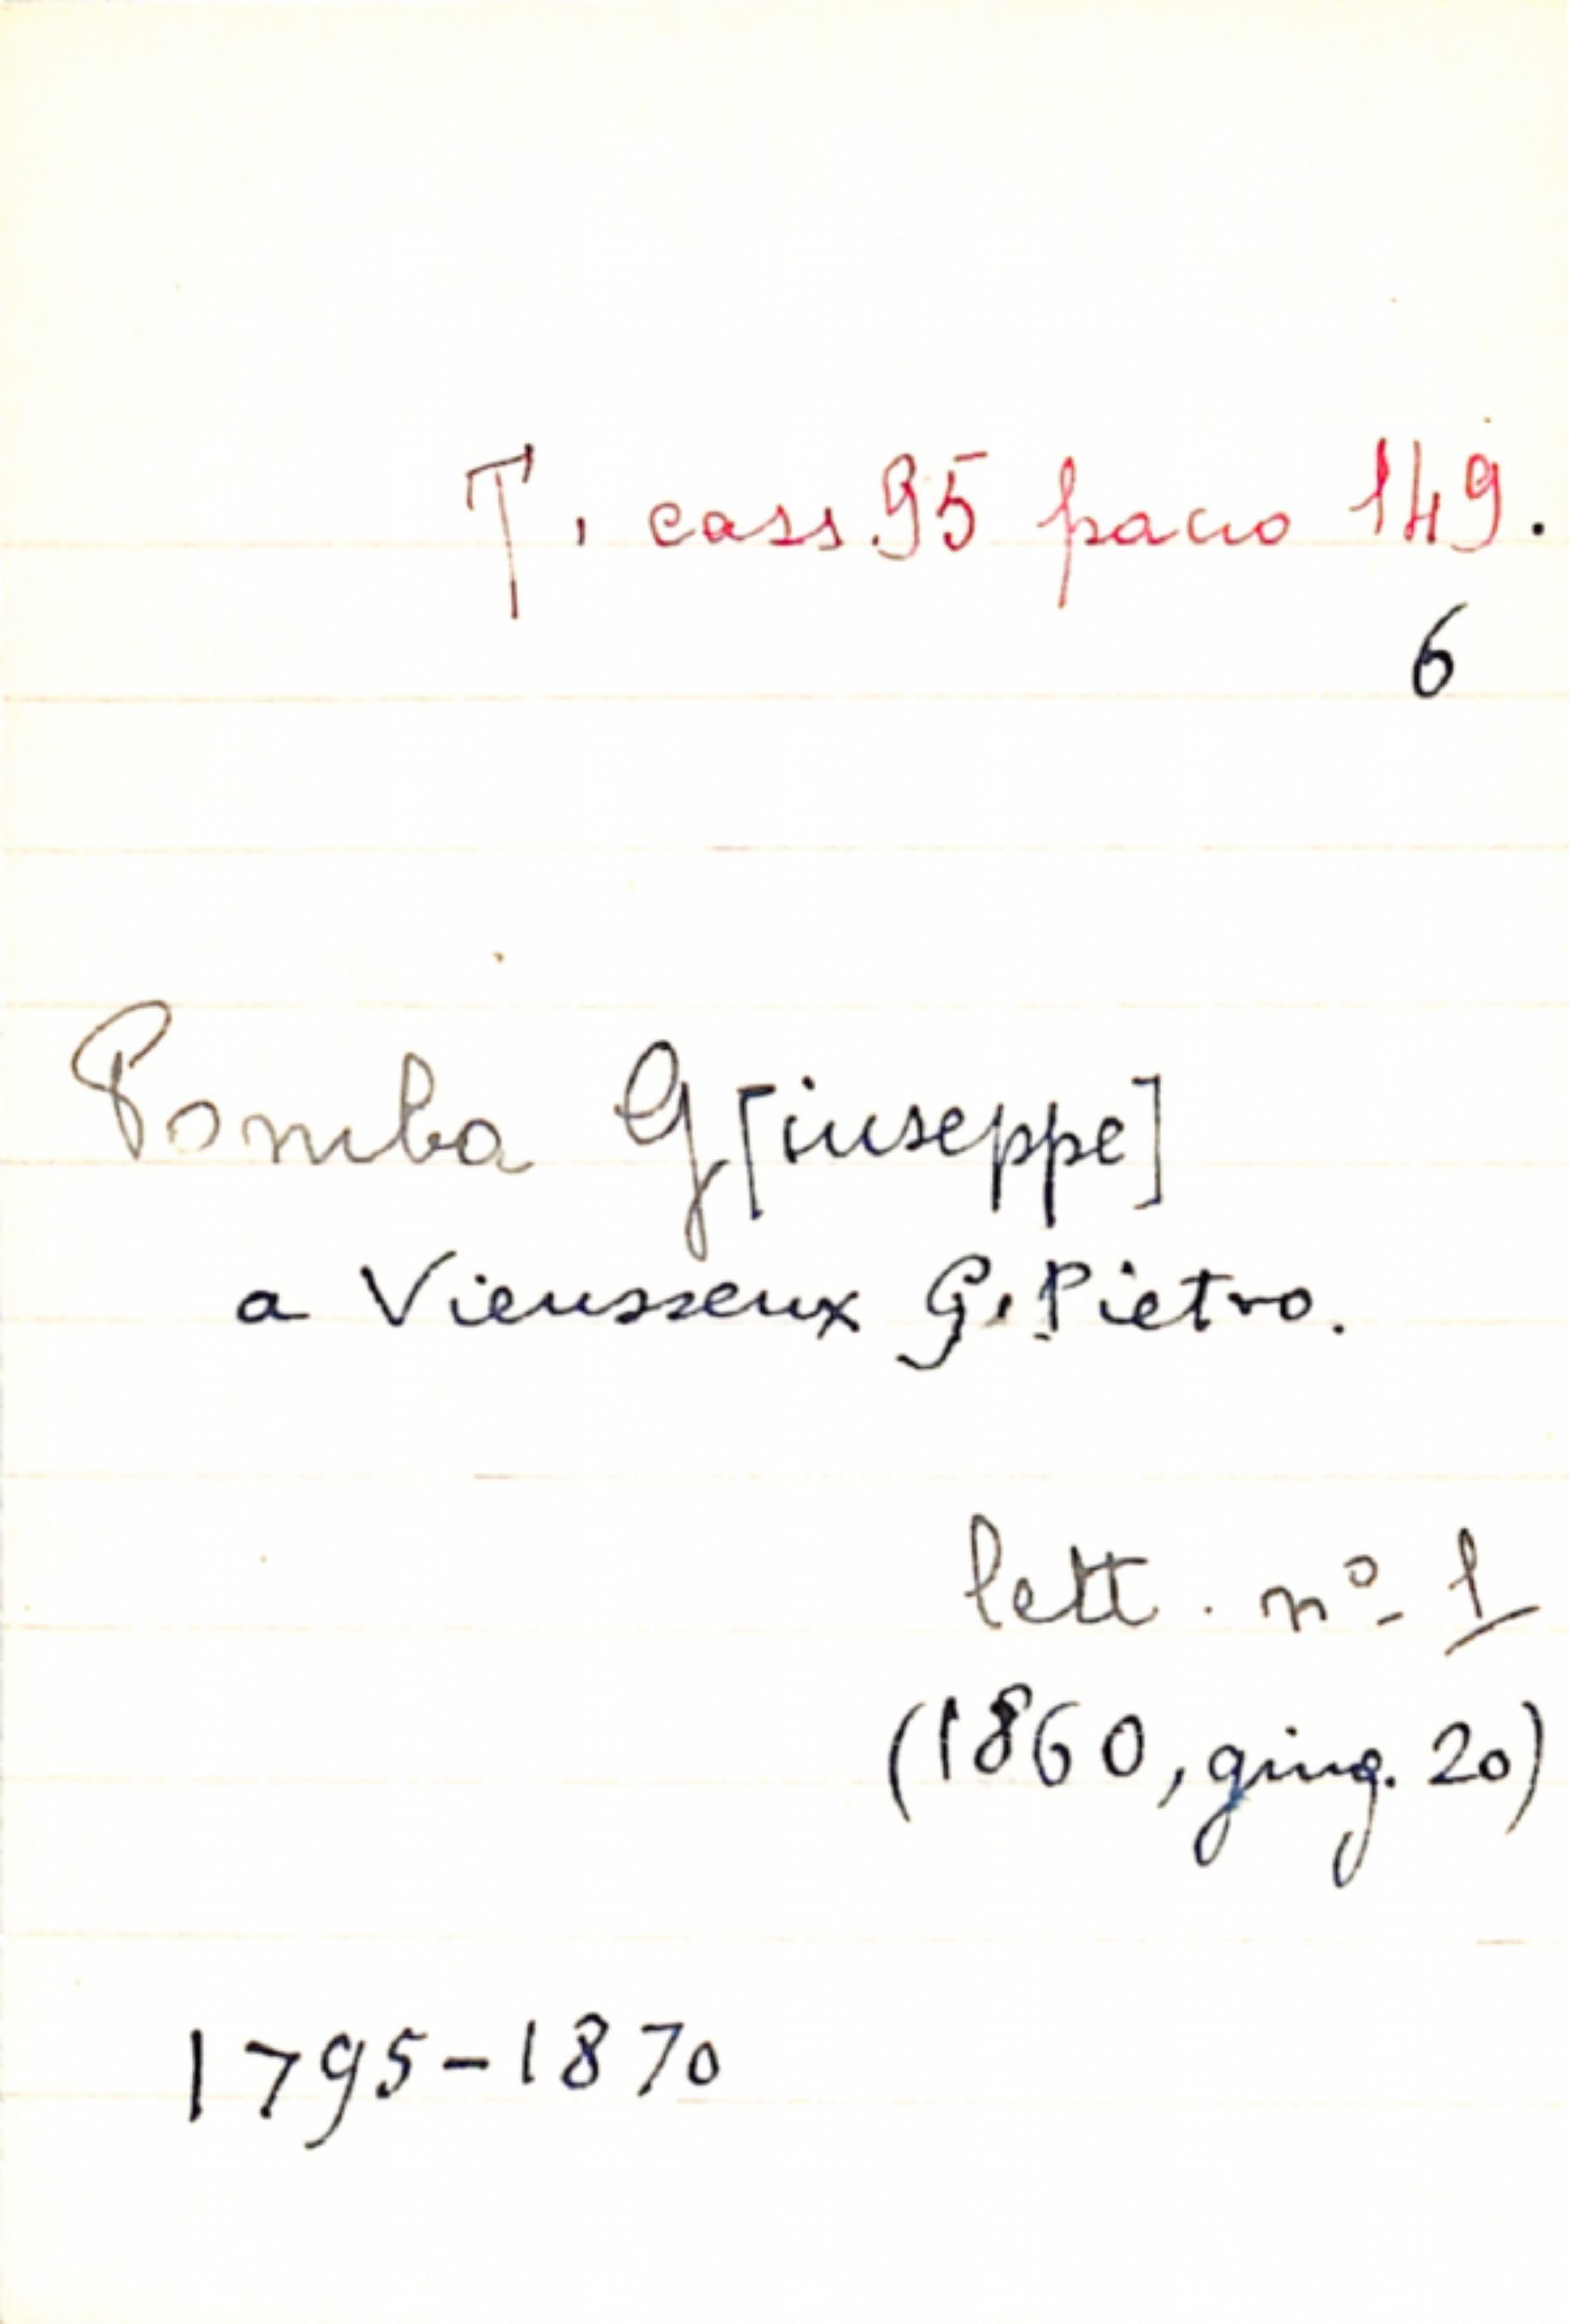 T. cass. 95 pacco 149.
6
Pomba G[iuseppe]
a Vieusseux G. Pietro.
lett. nº 1
(1860, giug. 20)
1795-1870